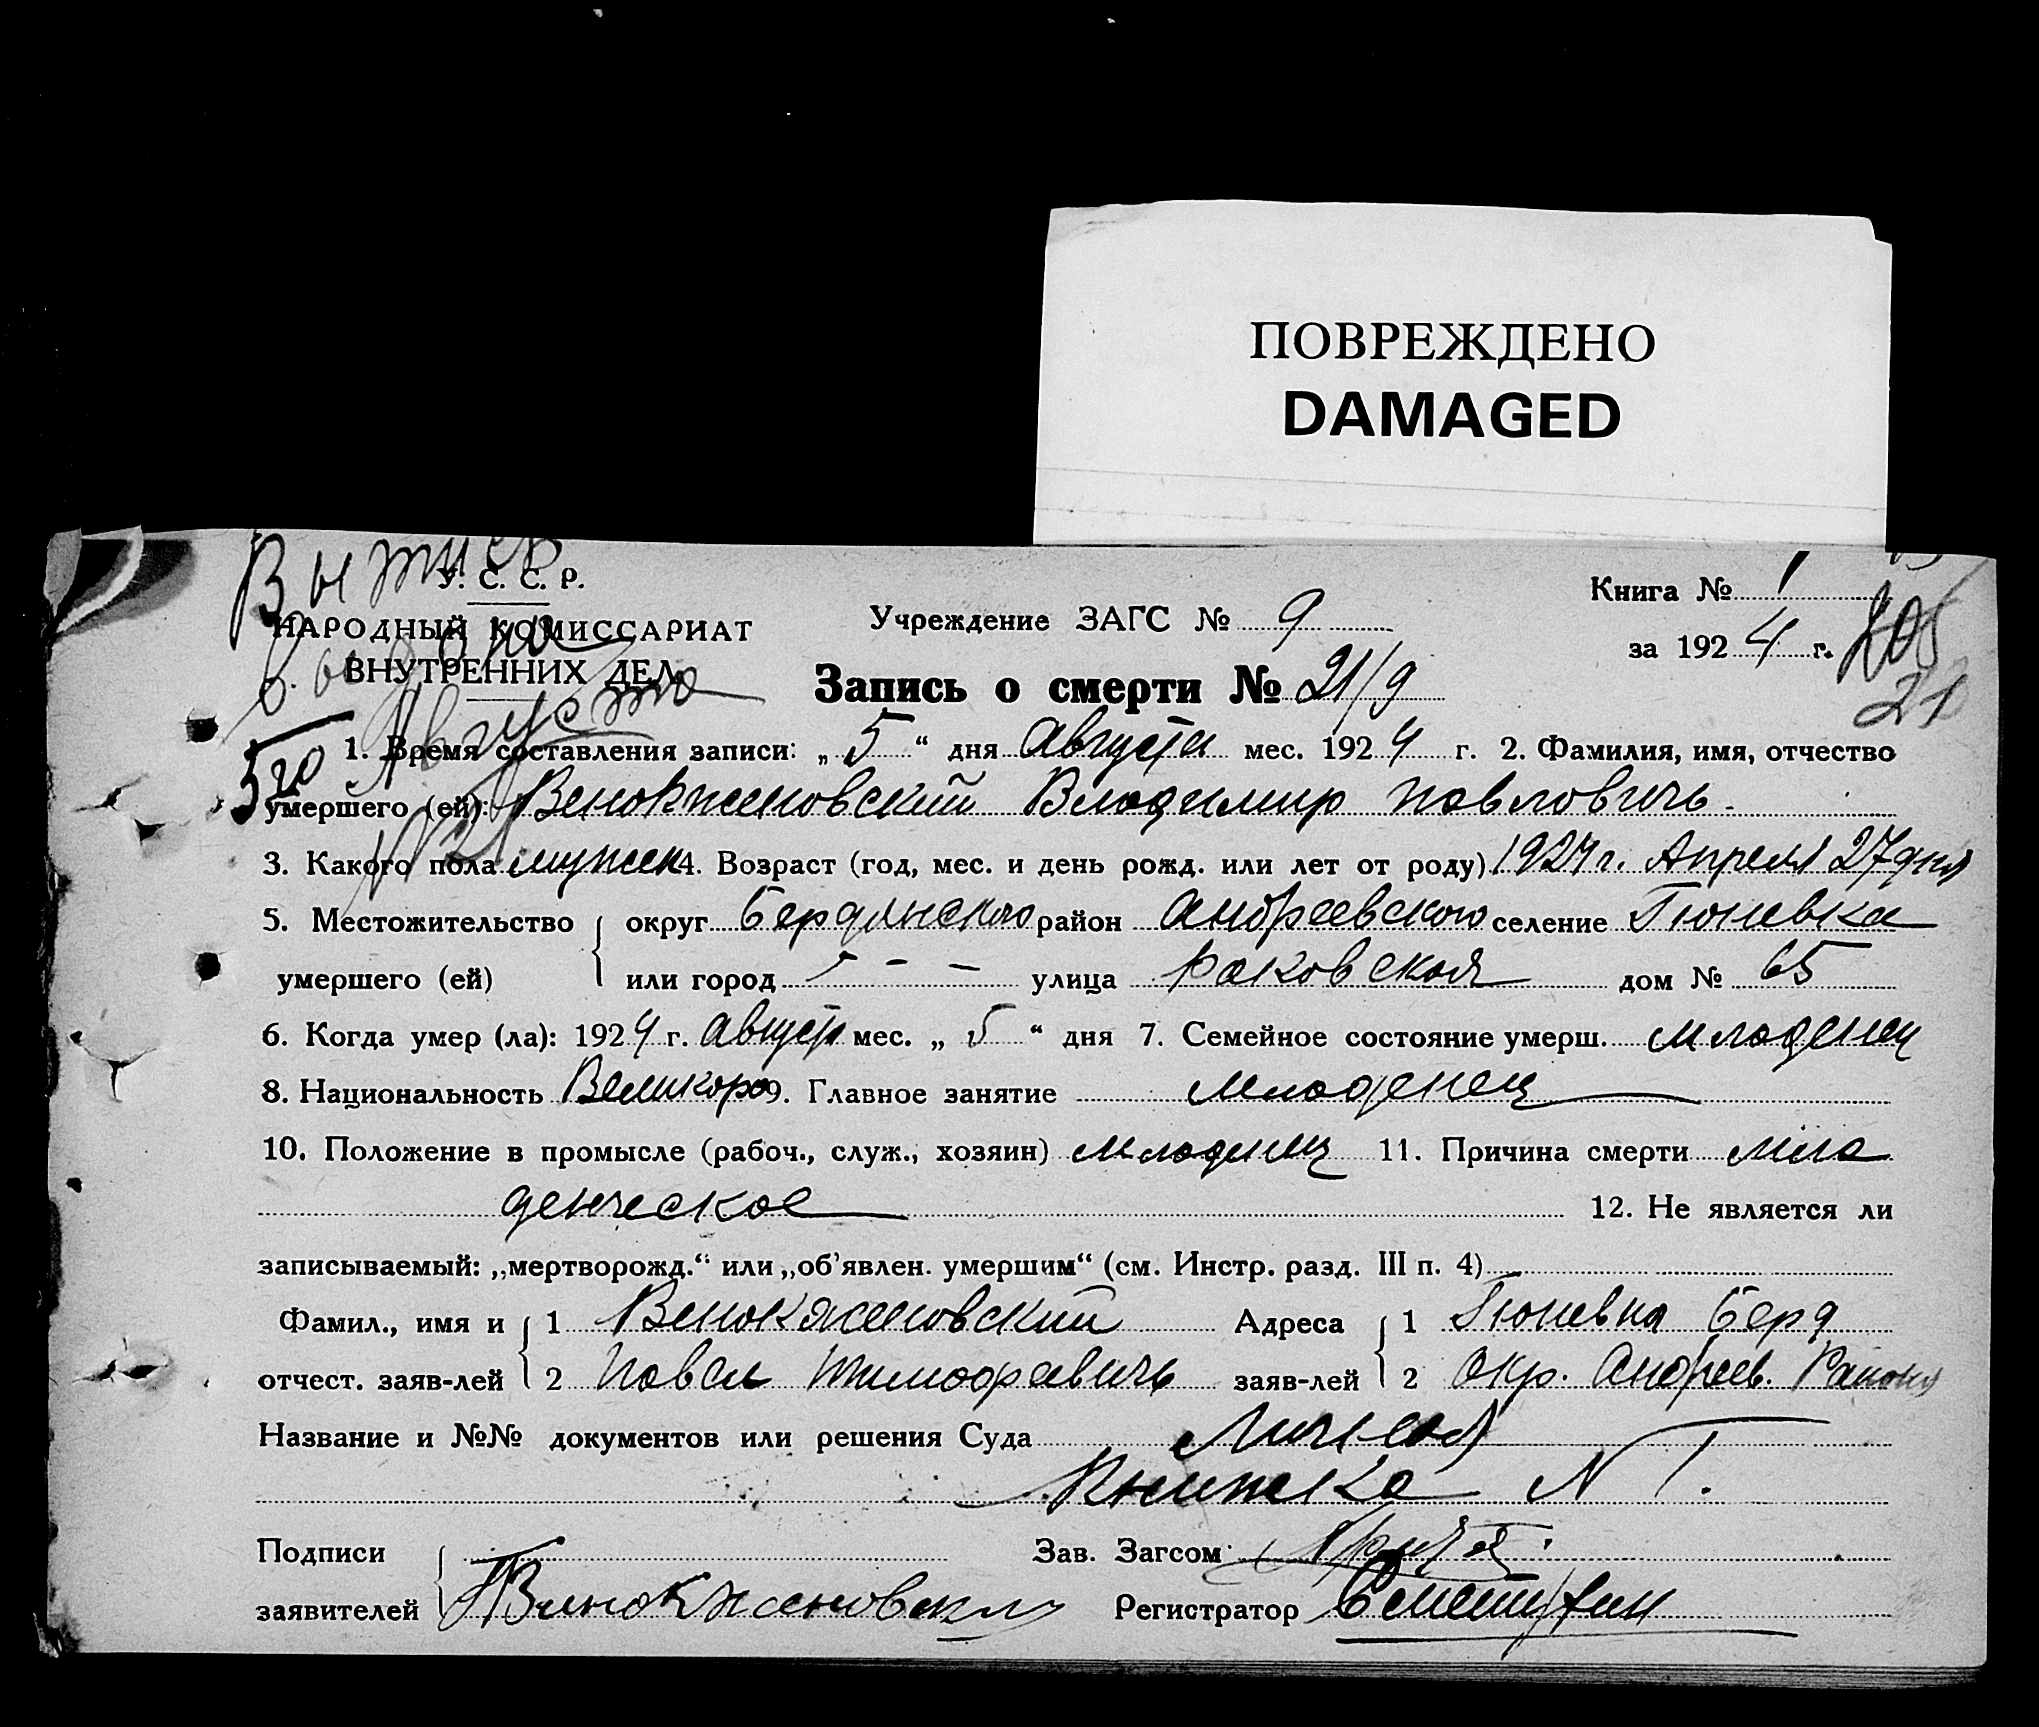 ПОВРЕЖДЕНО
DAMAGED
У. С. С. Р.
НАРОДНЫЙ КОМИССАРИАТ
ВНУТРЕННИХ ДЕЛ
Августа
5го
Учреждение ЗАГС № 9
Книга № 1
за 1924 г.
205
21
Запись о смерти № 21/9
1. Время составления записи: „5“ дня Августа мес. 1924 г. 2. Фамилия, имя, отчество
умершего (ей): Венокженовский Владимир Павловичь
3. Какого пола мужск 4. Возраст (год, мес. и день рожд. или лет от роду) 1924 г. Апреля 27 дня
5. Местожительство округ Бердянского район Андреевского селение Гюневка
умершего (ей) или город – – – улица Раковская дом № 65
6. Когда умер (ла): 1924 г. август мес. „5“ дня 7. Семейное состояние умерш. младенец
8. Национальность Великоро 9. Главное занятие младенец
10. Положение в промысле (рабоч., служ., хозяин) младенец 11. Причина смерти мла
денческое 12. Не является ли
записываемый: „мертворожд.“ или „об’явлен. умершим“ (см. Инстр. разд. III п. 4)
Фамил., имя и 1 Венокженовский Адреса 1 Гюневка Берд
отчест. заяв-лей 2 Павел Тимофеевичь заяв-лей 2 Окр. Андреев. Района
Название и №№ документов или решения Суда Личная
Книжка N 1.
Подписи Зав. Загсом
заявителей Регистратор